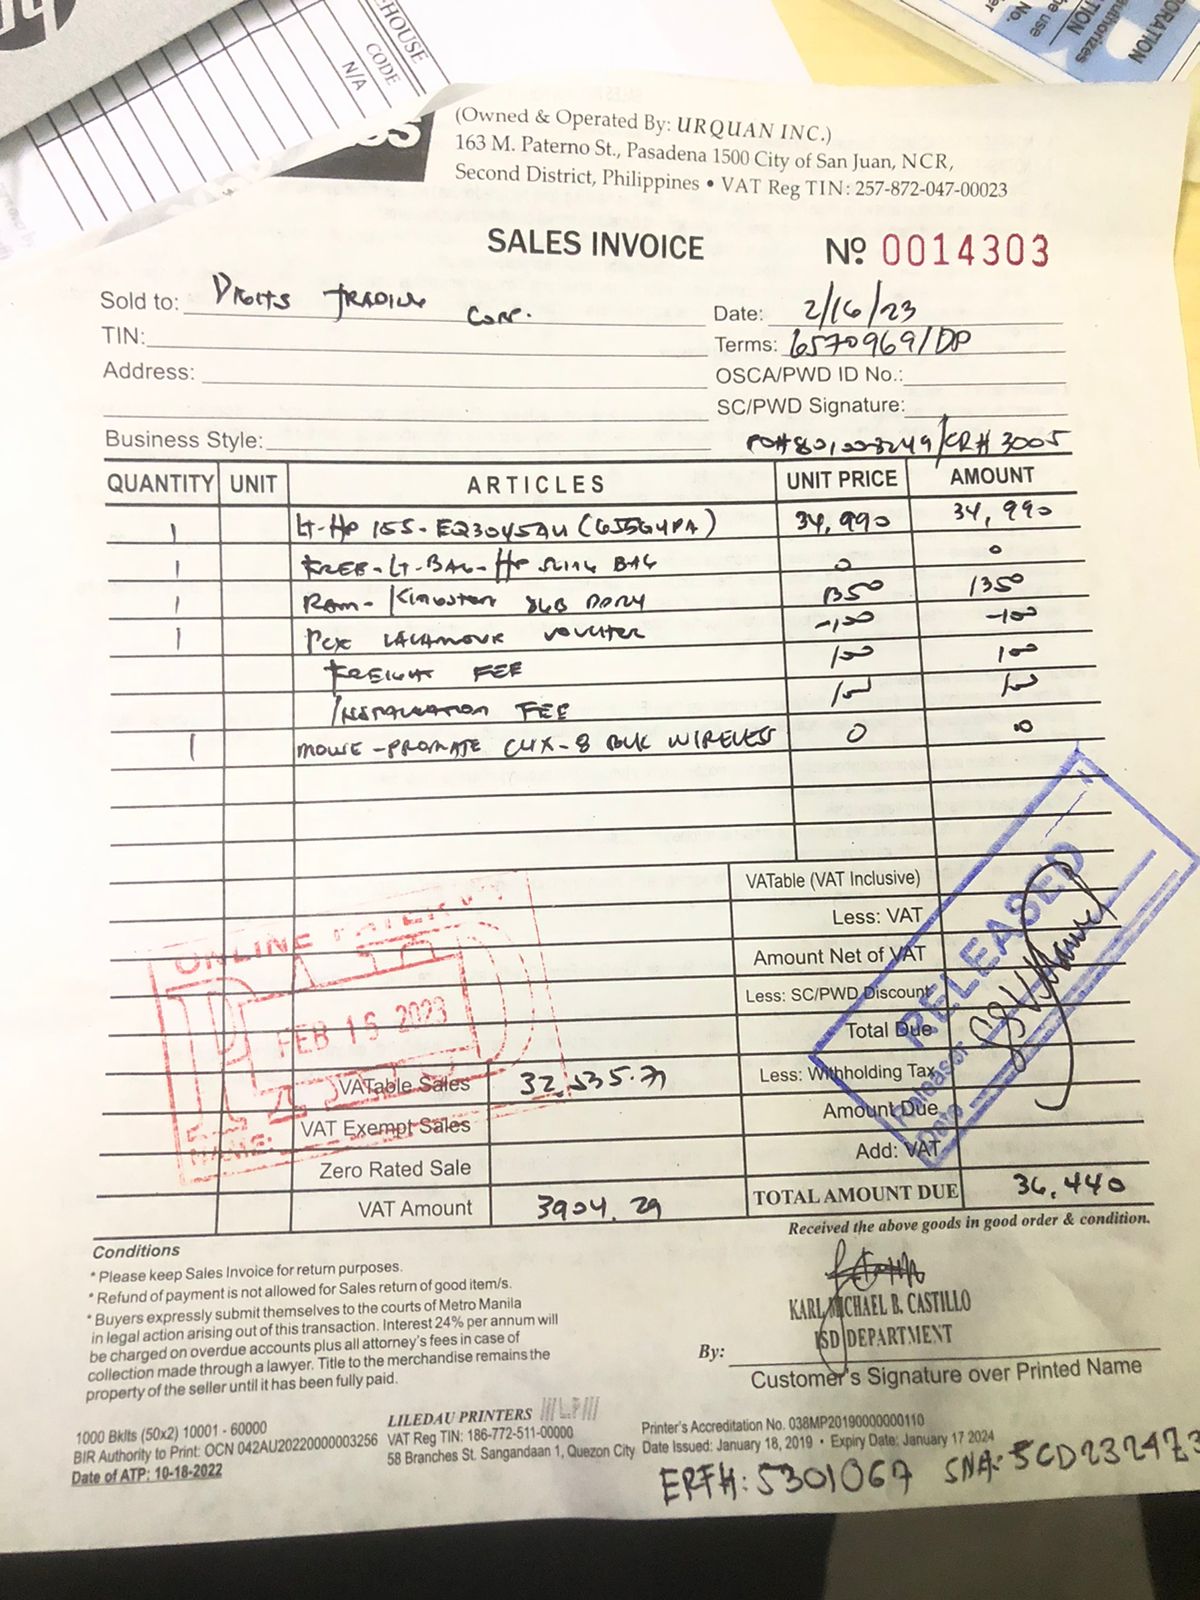 HOUSE
CODE
N/A
(Owned & Operated By: URQUAN INC.)
163 M. Paterno St., Pasadena 1500 City of San Juan, NCR,
Second District, Philippines • VAT Reg TIN: 257-872-047-00023
SALES INVOICE Nº 0014303
Sold to: Digits Trading Corp.
Date: 2/16/23
TIN:
Terms: 6570969/DP
Address:
OSCA/PWD ID No.:
SC/PWD Signature:
Business Style:
/CR# 3005
QUANTITY UNIT ARTICLES UNIT PRICE AMOUNT
1 LT-HP 15S-EQ3045AU 34,990 34,990
1 FREE-LT-BAG-HP SLING BAG 0 0
1 RAM-KINGSTON 8GB 1350 1350
1 PCX VOUCHER -100 -100
FREIGHT FEE 100 100
INSTALLATION FEE 100 100
1 MOUSE-PROMATE CLIX-8 BLK WIRELESS 0 0
VATable (VAT Inclusive)
Less: VAT
Amount Net of VAT
Less: SC/PWD Discount
Total Due
Less: Withholding Tax
Amount Due
Add: VAT
TOTAL AMOUNT DUE 36,440
RELEASED
Releasor
Date
ONLINE
PAID
FEB 15 2023
NAME:
VATable Sales 32,535.71
VAT Exempt Sales
Zero Rated Sale
VAT Amount 3904.29
Received the above goods in good order & condition.
KARL MICHAEL B. CASTILLO
ISD DEPARTMENT
By:
Customer's Signature over Printed Name
Conditions
* Please keep Sales Invoice for return purposes.
* Refund of payment is not allowed for Sales return of good item/s.
* Buyers expressly submit themselves to the courts of Metro Manila
in legal action arising out of this transaction. Interest 24% per annum will
be charged on overdue accounts plus all attorney's fees in case of
collection made through a lawyer. Title to the merchandise remains the
property of the seller until it has been fully paid.
1000 Bklts (50x2) 10001 - 60000
BIR Authority to Print: OCN 042AU20220000003256
Date of ATP: 10-18-2022
LILEDAU PRINTERS
VAT Reg TIN: 186-772-511-00000
58 Branches St. Sangandaan 1, Quezon City
Printer's Accreditation No. 038MP20190000000110
Date Issued: January 18, 2019 • Expiry Date: January 17 2024
ERF#: 5301067 5CD232